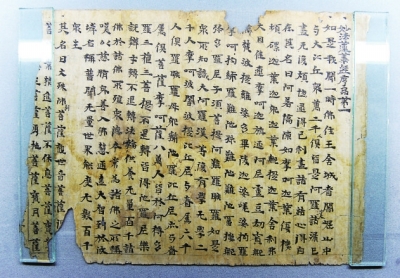 妙法蓮華經序品第一
如是我聞一時佛住王舍城耆闍崛山中
與大比丘眾萬二千人俱皆是阿羅漢諸漏已
盡無復煩惱逮得己利盡諸有結心得自
在其名曰阿若憍陳如摩訶迦葉優樓
頻螺迦葉伽耶迦葉那提迦葉舍利弗
大目揵連摩訶迦旃延阿㝹樓馱劫賓那
憍梵波提離婆多畢陵伽婆蹉薄拘羅
摩訶拘絺羅難陀孫陀羅難陀富樓那
羅尼子須菩提阿難羅睺羅如是
眾所知識大阿羅漢等復有學無學二
千人摩訶波闍波提比丘尼與眷屬六千
人俱羅睺羅母耶輸陀羅比丘尼亦與眷
屬俱菩薩摩訶薩八萬人皆於阿耨多
羅三藐三菩提不退轉皆得陀羅尼樂
說辯才轉不退轉法輪供養無量百千諸
佛於諸佛所殖眾德本常為諸佛之所稱
歎以慈修身善入佛慧通達大智到於彼
岸名稱普聞無量世界能度無數百千
眾生
其名曰文殊師利菩薩觀世音菩薩
精進菩薩不休息菩薩寶
菩薩寶月菩薩